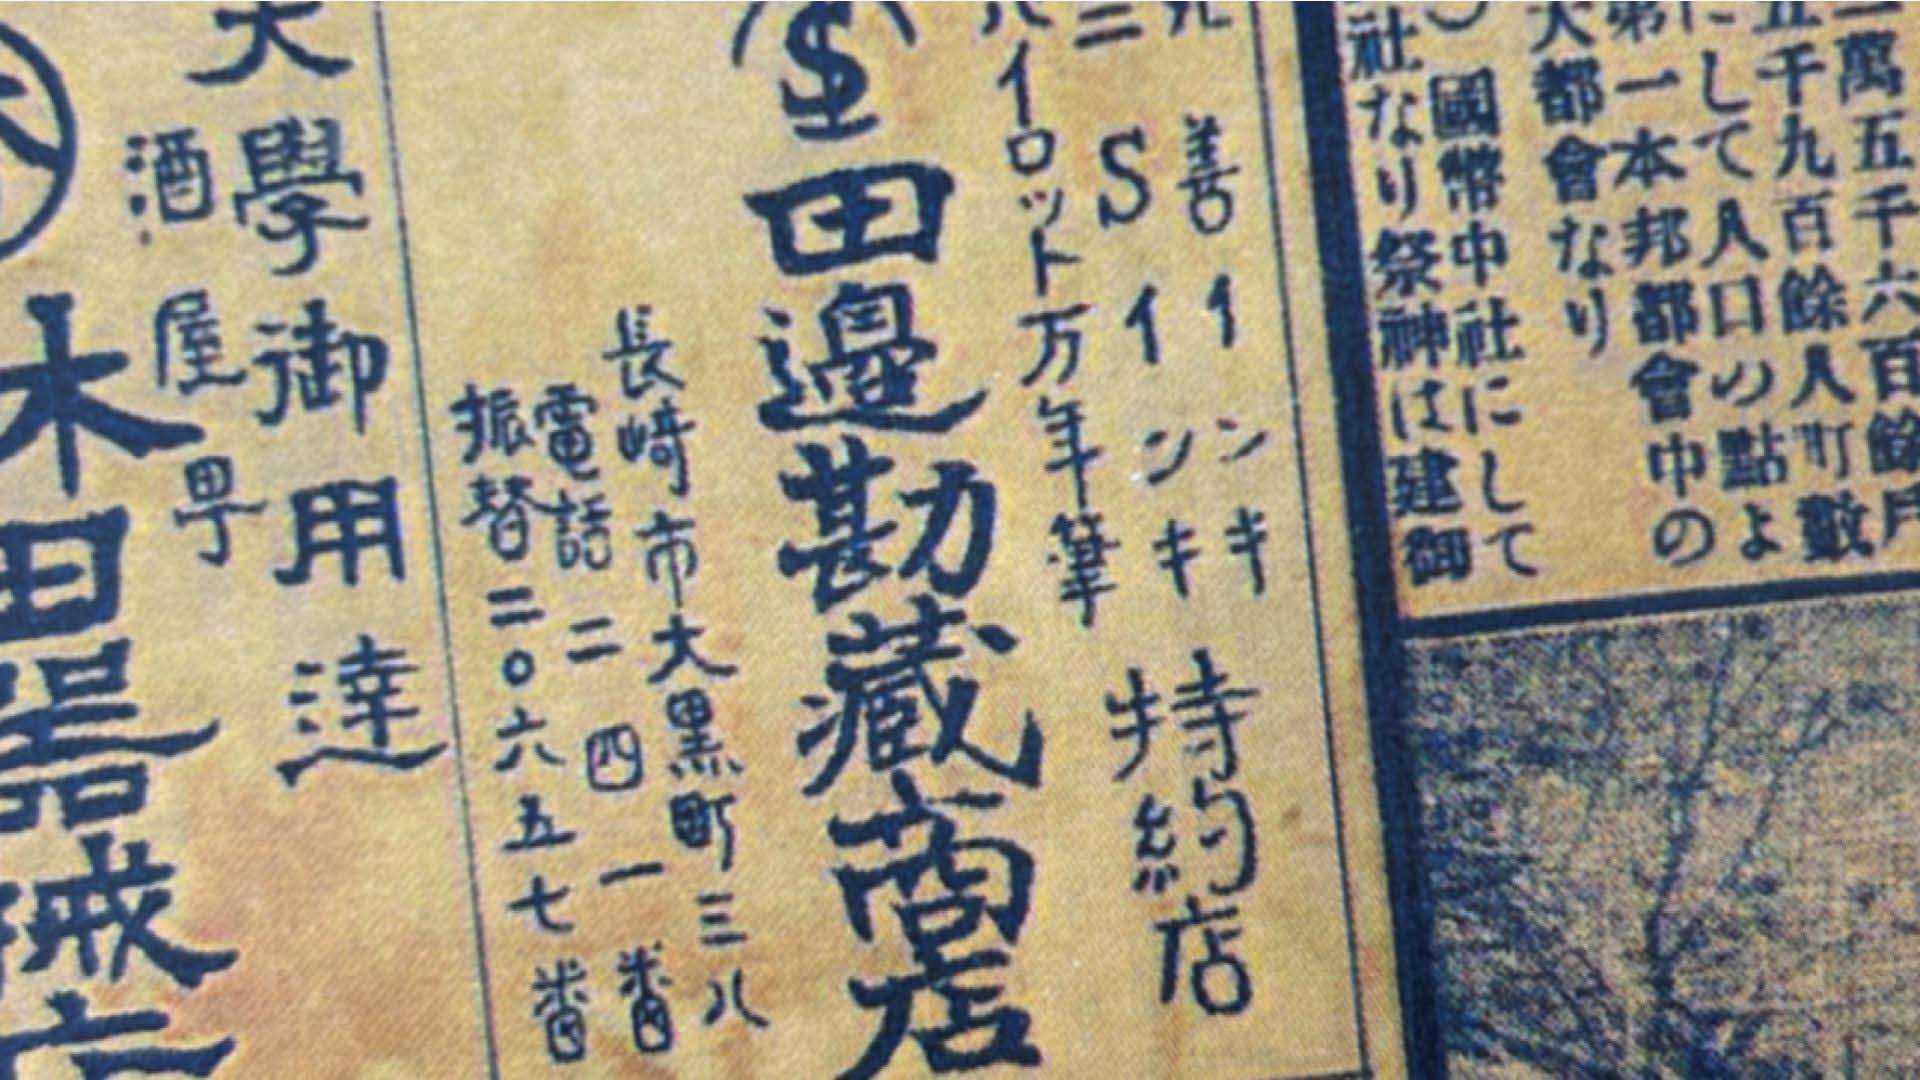 二萬五千六百餘戶
五千九百餘人町數
にして人口の點よ
第一本邦都會中の
大都會なり
國幣中社にして
社なり祭神は建御
善インキ
三Sインキ
パイロット万年筆
特約店
田邊勘藏商店
長崎市大黒町三八
電話二四一番
振替二〇六五七番
大學御用達
酒屋町
木田器械店